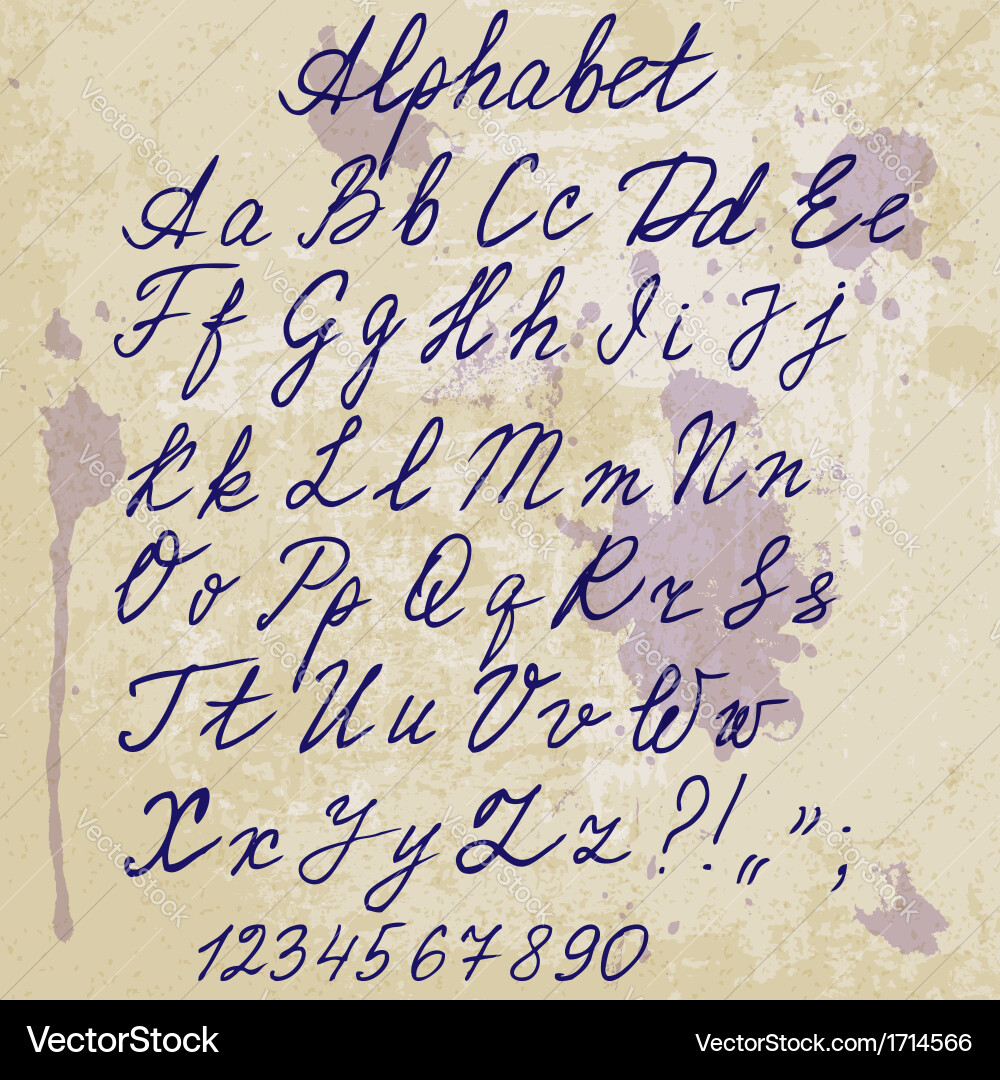 Alphabet
Aa Bb Cc Dd Ee
Ff Gg Hh Ii Jj
Kk Ll Mm Nn
Oo Pp Qq Rr Ss
Tt Uu Vv Ww
Xx Yy Zz ?! „ ” ;
1234567890
VectorStock® VectorStock.com/1714566